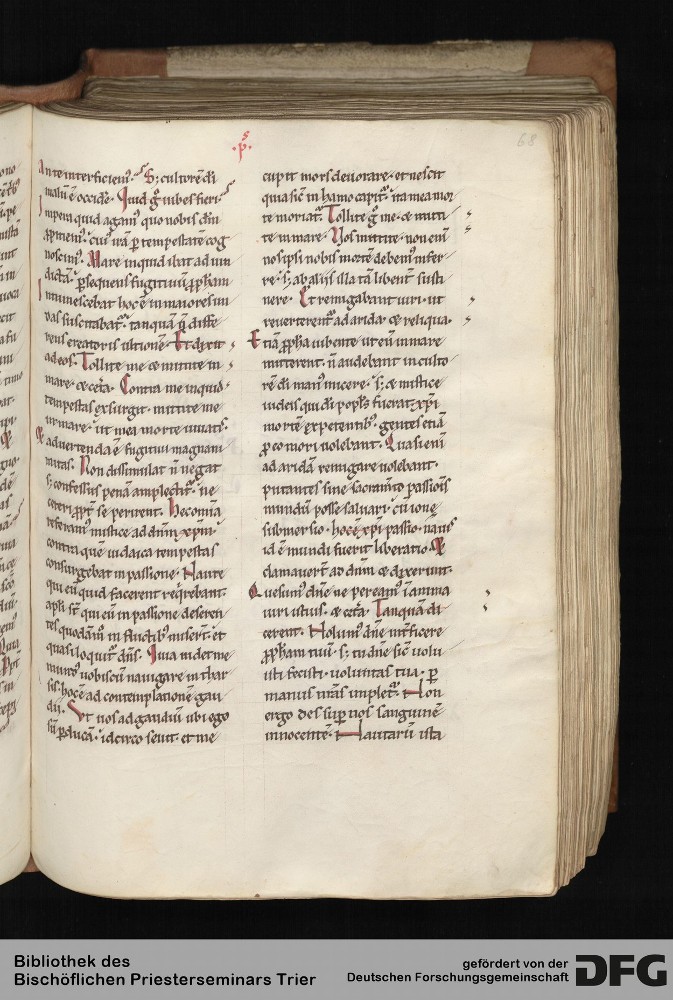 s
·p·
68
An te interficiem᷒. S; cultorē dī
malū ē occidē. Quid g̊ iubes fieri.
In pena quid agam᷒ quo nobis dīm
noscim᷒. Mare inquid ibat ad nū
dicta᷒. psequens fugitiuū ꝓphām
intumescebat hoc ē in maiores un
das suscitabat᷒. tanquā
rens creatoris ultionē. Et dixit
ad eos. Tollite me & mittite in
mare. & cet̄a. Contra me inquid
tempestas exsurgit. mittite me
in mare. ut mea morte uiuatis.
& aduertenda ē fugitiui magnani
mitas. Non dissimulat ñ negat
s; confessus penā amplectit᷒. ne
ceteri ꝓpt̄ se perirent. Hec omīa
referam᷒ mistice ad dnm xp̄m.
contra quē iudaica tempestas
consurgebat in passione. Naute
qui eū quid facerent reqrebant.
apl̄i st̄ qui eū in passione deseren
tes quodām in fluctib᷒ misert̄. et
quasi loquit᷒ dn̄s. Quia uidet me
mund᷒ nobiscū nauigare in thar
sis. hoc ē ad contemplationē gau
dii. Vt uos ad gaudiū ubi ego
sū pducā. idcirco seuit. et me
cupit mors deuorare. et nescit
quia sic̄ in hamo capit᷒. ita mea mor
te moriat᷒. Tollite g̊ me. & mitti
te in mare. Nos mittite. non enī
nos ipsi nobis mortē debem᷒ infer
re. s; ab aliis illatā libent̄ susti
nere. Et remigabant uiri. ut
reuerterent᷒ ad aridā. & reliqua.
Etiā ꝓpha iubente ut eū in mare
mitterent. ñ audebant in culto
rē dī man᷒ inicere. s; & mistice
iudeis qui dī popl̄s fuerat. xp̄i
mortē expetentib᷒. gentes etiā
ꝓ eo mori uolebant. Quasi enī
ad aridā remigare uolebant.
putantes sine sacram̄to passiōis
mundū posse saluari. cū ione
submersio. hoc ē xp̄i passio. nauis
id ē mundi fuerit liberatio. &
clamauert̄ ad dnm & dixerunt.
Quesum᷒ dn̄e ne peream᷒ in anima
uiri istius. & cet̄a. Tanquā di
cerent. Nolum᷒ dn̄e int̄ficere
ꝓphām tuū. s; tu dn̄e sic̄ uolu
isti fecisti. uoluntas tua. p
manus nr̄as implet᷒. Non
ergo des sup nos sanguinē
innocentē. Nautarū ista
Bibliothek des
Bischöflichen Priesterseminars Trier
gefördert von der
Deutschen Forschungsgemeinschaft
DFG